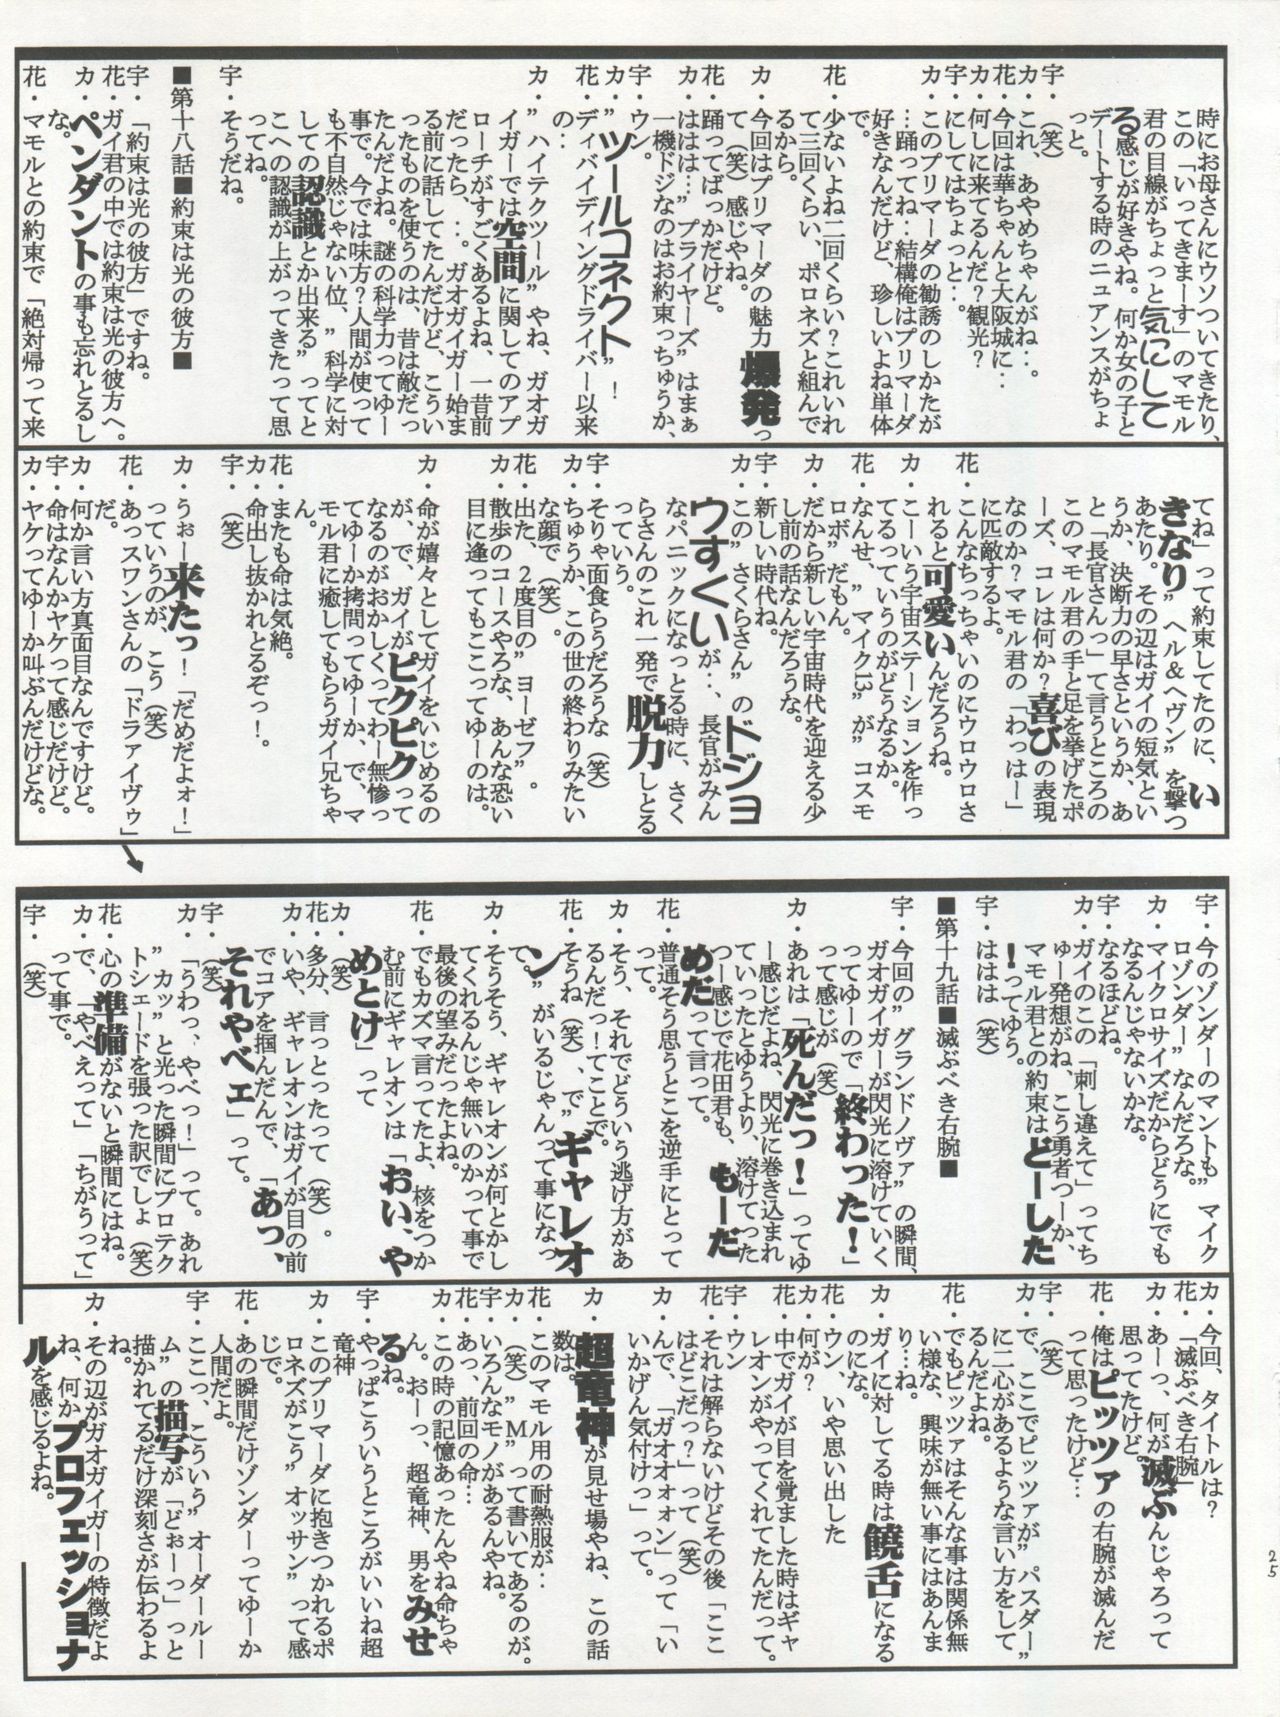 時にお母さんにウソついてきたり、
この「いってきまーす」のマモル
君の目線がちょっと気にして
る感じが好きやね。何か女の子と
デートする時のニュアンスがちょ
っと。
宇・（笑）
カ・これ、あやめちゃんがね‥。
花・今回は華ちゃんと大阪城に‥
カ・何しに来てるんだ？観光？
宇・にしてはちょっと‥。
カ・このプリマーダの勧誘のしかたが
…踊ってね‥結構俺はプリマーダ
好きなんだけど、珍しいよね単体
花・少ないよね二回くらい？これいれ
て三回くらい、ポロネズと組んで
るから。
カ・今回はプリマーダの魅力爆発っ
て（笑）感じやね。
花・踊ってばっかだけど。
カ・ははは…”プライヤーズ”はまぁ
一機ドジなのはお約束っちゅうか、
宇・ウン。
カ・”ツールコネクト”！
花・ディバイディングドライバー以来
の‥
カ・”ハイテクツール”やね、ガオガ
イガーでは空間に関してのアプ
ローチがすごくあるよね、一昔前
だったら、‥。ガオガイガー始ま
る前に話してたんだけど、こうい
ったものを使うのは、昔は敵だっ
たんだよね。謎の科学力ってゆー
事で。今では味方？人間が使って
も不自然じゃない位、”科学に対
しての認識とか出来る”ってと
こへの認識が上がってきたって思
ってね。
宇・そうだね。
■第十八話■約束は光の彼方■
宇・「約束は光の彼方」ですね。
花・ガイ君の中では約束は光の彼方へ。
カ・ペンダントの事も忘れとるし
な。
花・マモルとの約束で「絶対帰って来
てね」って約束してたのに、い
きなり”ヘル＆ヘヴン”を撃つ
あたり。その辺はガイの短気とい
うか、決断力の早さというか、あ
と「長官さんっ」て言うところの
このマモル君の手と足を挙げたポ
ーズ、コレは何か？喜びの表現
なのか？マモル君の「わっはー」
に匹敵するよ。
花・こんなちっちゃいのにウロウロさ
れると可愛いんだろうね。
カ・こーいう宇宙ステーションを作っ
てるっていうのがどうなるか。
花・なんせ、”マイク13”が”コスモ
ロボ”だもん。
カ・だから新しい宇宙時代を迎える少
し前の話なんだろうな。
宇・新しい時代ね。
カ・この”さくらさん”のドジョ
ウすくいが‥、長官がみん
なパニックになっとる時に、さく
らさんのこれ一発で脱力しとる
っていう。
宇・そりゃ面食らうだろうな（笑）
カ・ちゅうか、この世の終わりみたい
な顔で（笑）
花・出た、２度目の”ヨーゼフ”。
カ・散歩のコースやろな、あんな恐い
目に逢ってもここってゆーのは。
カ・命が嬉々としてガイをいじめるの
が、で、ガイがピクピクって
なるのがおかしくってわー無惨っ
てゆーか拷問ってゆーか、で、マ
モル君に癒してもらうガイ兄ちゃ
ん。
花・またも命は気絶。
カ・命出し抜かれとるぞっ！。
宇・（笑）
カ・うぉー来たっ！「だめだよォ！」
っていうのが、こう（笑）
花・あっスワンさんの「ドラァイヴゥ」
だ。
カ・何か言い方真面目なんですけど。
宇・命はなんかヤケって感じだけど。
カ・ヤケってゆーか叫ぶんだけどな。
宇・今のゾンダーのマントも”マイク
ロゾンダー”なんだろな。
カ・マイクロサイズだからどうにでも
なるんじゃないかな。
宇・なるほどね。
カ・ガイのこの「刺し違えて」ってち
ゅー発想がね、こう勇者つーか、
マモル君との約束はどーした
！ってゆう。
宇・ははは（笑）
■第十九話■滅ぶべき右腕■
宇・今回の”グランドノヴァ”の瞬間、
ガオガイガーが閃光に溶けていく
ってゆーので「終わった！」
って感じが（笑）
カ・あれは「死んだっ！」ってゆ
ー感じだよね、閃光に巻き込まれ
ていったとゆうより、溶けてった
つー感じで花田君も、もーだ
めだって言って。
花・普通そう思うとこを逆手にとって
って。
カ・そう、それでどういう逃げ方があ
るんだっ！てことで。
花・そうね（笑）、で”ギャレオ
ン”がいるじゃんって事になっ
て。
カ・そうそう、ギャレオンが何とかし
てくれるんじゃ無いのかって事で
最後の望みだったよね。
花・でもカズマ言ってたよ、核をつか
む前にギャレオンは「おい、や
めとけ」って
カ・（笑）
花・多分、言っとったって（笑）。
カ・いや、ギャレオンはガイが目の前
でコアを掴んだんで、「あっ、
それやべェ」って。
宇・（笑）
カ・「うわっ、やべっ！」って。あれ
”カッ”と光った瞬間にプロテク
トシェードを張った訳でしょ（笑）
花・心の準備がないと瞬間にはね。
カ・で、「やべえって」「ちがうって」
って事で。
宇・（笑）
カ・今回、タイトルは？
花・「滅ぶべき右腕」
カ・あーっ、何が滅ぶんじゃろって
思ってたけど。
花・俺はピッツァの右腕が滅んだ
って思ったけど…
宇・（笑）
カ・で、ここでピッツァが”パスダー”
に二心があるような言い方をして
るんだよね。
花・でもピッツァはそんな事は関係無
い様な、興味が無い事にはあんま
り…ね。
カ・ガイに対してる時は饒舌になる
のにな。
花・ウン、いや思い出した
カ・何が？
花・中でガイが目を覚ました時はギャ
レオンがやってくれてたんだって。
宇・ウン
花・それは解らないけどその後「ここ
はどこだっ？」って（笑）
カ・んで、「ガオオォォン」って「い
いかげん気付けっ」って。
カ・超竜神が見せ場やね、この話
数は。
花・このマモル用の耐熱服が‥
カ・（笑）”Ｍ”って書いてあるのが。
宇・いろんなモノがあるんやね。
花・あっ、前回の命…
カ・この時の記憶あったんやね命ちゃ
ん。おーっ、超竜神、男をみせ
るね。
宇・やっぱこういうところがいいね超
竜神
カ・このプリマーダに抱きつかれるポ
ロネズがこう”オッサン”って感
じで。
花・あの瞬間だけゾンダーってゆーか
人間だよ。
宇・ここっ、こういう”オーダールー
ム”の描写が「どぉーっ」っと
描かれてるだけ深刻さが伝わるよ
ね。
カ・その辺がガオガイガーの特徴だよ
ね、何かプロフェッショナ
ルを感じるよね。
25